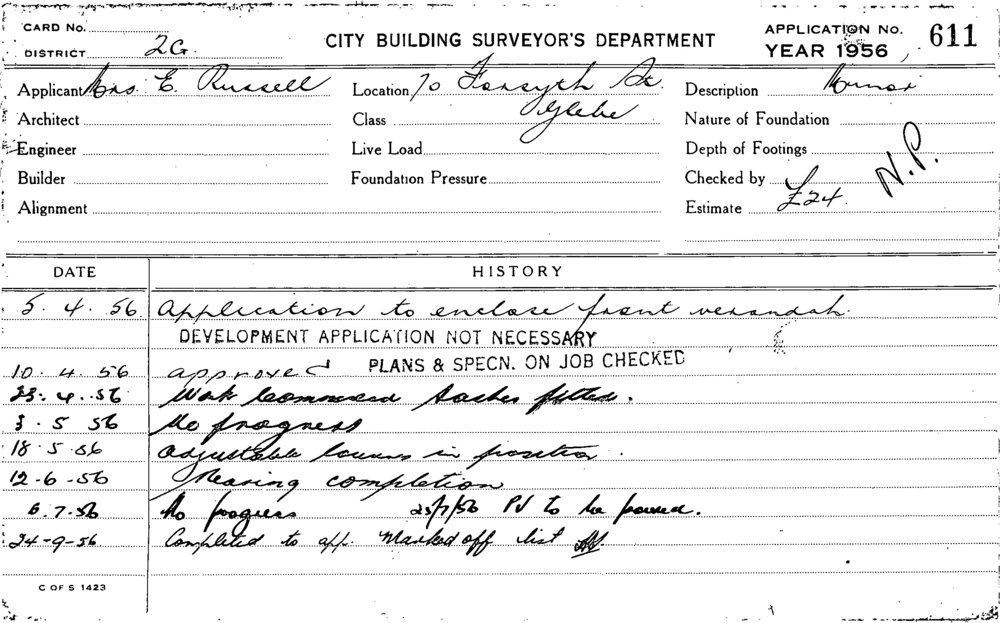 CARD No.
DISTRICT 2G.
CITY BUILDING SURVEYOR'S DEPARTMENT
APPLICATION No. 611
YEAR 1956,
Applicant Mrs. E. Russell
Location 70 Forsyth St.
Glebe
Description Minor
Architect
Class
Nature of Foundation
Engineer
Live Load
Depth of Footings
Builder
Foundation Pressure
Checked by
N.P.
Alignment
Estimate £24.
DATE HISTORY
5. 4. 56. Application to enclose front verandah.
DEVELOPMENT APPLICATION NOT NECESSARY
PLANS & SPECN. ON JOB CHECKED
10. 4. 56 approved
23. 4. 56 Work Commenced Sashes fitted.
3. 5 56 No progress
18. 5. 56 adjustable louvres in position.
12-6-56 Nearing completion
6. 7. 56 No progress 25/7/56 to be poured.
24-9-56 Completed to app. Marked off list
C OF S 1423